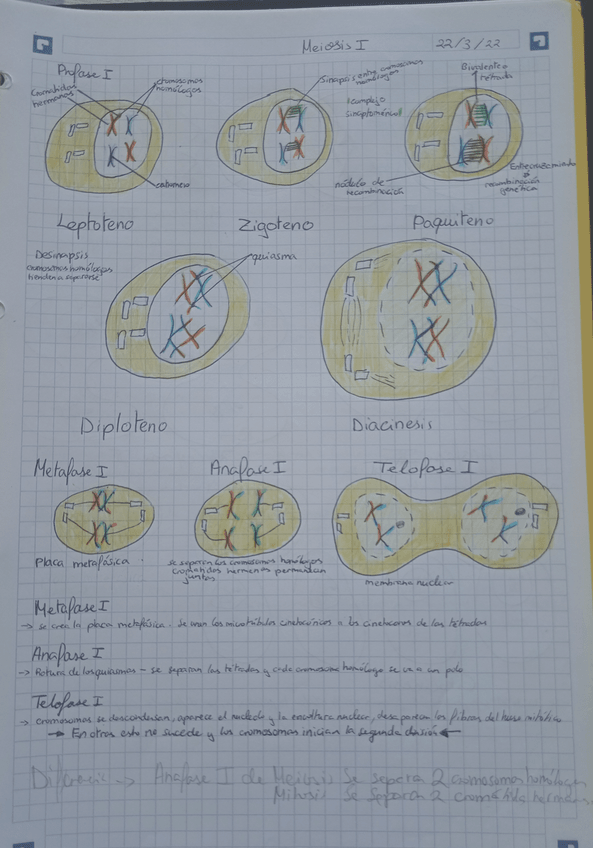 Meiosis I
22/3/22
Profase I
Cromátidas
hermanas
cromosomas
homólogos
centrómero
Sinapsis entre cromosomas
homólogos
(complejo
sinaptoménical
Bivalentes
tétrada
nódulo de
recombinación
Entrecruzamiento
recombinación
genética
Leptoteno
Zigoteno
Paquiteno
Desinapsis
cromosomas homólogos
tienden a separarse
quiasma
Diploteno
Diacinesis
Metafase I
Anafase I
Telofase I
Placa metafásica.
se separan los cromosomas homólogos
cromátidas hermanas permanecen
juntas
membrana nuclear
Metafase I
→ se crea la placa metafásica. Se unen los microtúbulos cinetocóricos a los cinetocoros de las tétradas
Anafase I
→ Rotura de los quiasmas - se separan las tétradas y cada cromosoma homólogo se va a un polo
Telofase I
→ cromosomas se descondensan, aparece el nucleolo y la envoltura nuclear, desaparecen las fibras del huso mitótico
→ En otros esto no sucede y los cromosomas inician la segunda división ←
Diferencia → Anafase I de Meiosis Se separa 2 cromosomas homólogos
Mitosis Se Separa 2 cromátida hermanas